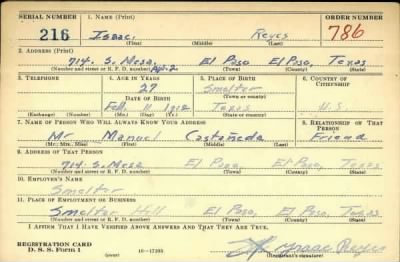 SERIAL NUMBER 1. NAME (Print) ORDER NUMBER
216 Isaac Reyes 786
(First) (Middle) (Last)
2. ADDRESS (Print)
714. S. Mesa. Apt. 2 El Paso El Paso, Texas
(Number and street or R. F. D. number) (Town) (County) (State)
3. TELEPHONE 4. AGE IN YEARS 5. PLACE OF BIRTH 6. COUNTRY OF CITIZENSHIP
27 Smelter
DATE OF BIRTH (Town or county)
Feb. 11 1912 Texas U.S.
(Exchange) (Number) (Mo.) (Day) (Yr.) (State or country)
7. NAME OF PERSON WHO WILL ALWAYS KNOW YOUR ADDRESS 8. RELATIONSHIP OF THAT PERSON
Mr Manuel Castañeda Friend
(Mr., Mrs., Miss) (First) (Middle) (Last)
9. ADDRESS OF THAT PERSON
714. S. Mesa El Paso, El Paso, Texas
(Number and street or R. F. D. number) (Town) (County) (State)
10. EMPLOYER'S NAME
Smelter
11. PLACE OF EMPLOYMENT OR BUSINESS
Smelter Hill El Paso, El Paso, Texas
(Number and street or R. F. D. number) (Town) (County) (State)
I AFFIRM THAT I HAVE VERIFIED ABOVE ANSWERS AND THAT THEY ARE TRUE.
REGISTRATION CARD
D. S. S. Form 1 (over) 16—17105 Isaac Reyes
(Registrant's signature)